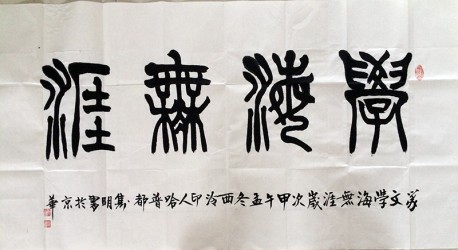 學海無涯
篆文学海無涯歲次甲午孟冬西泠印人哈普都·隽明書於京華